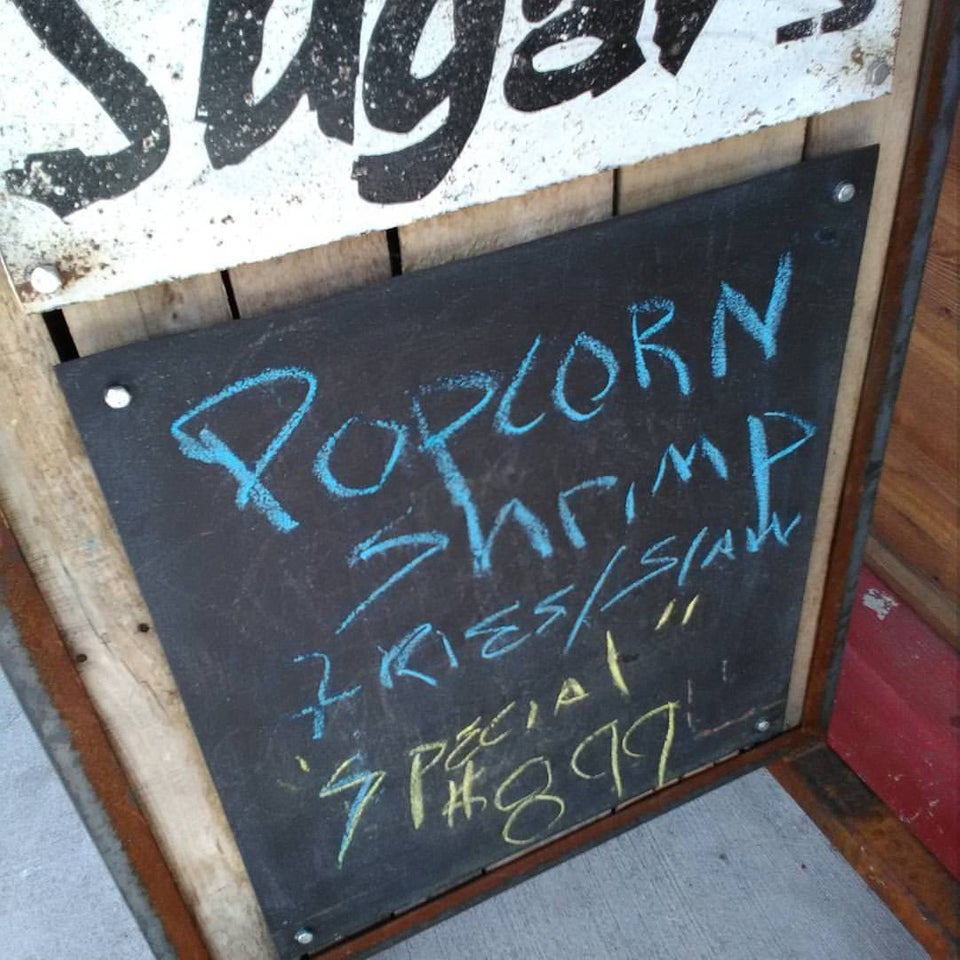 Sugar's
POPCORN
ShriMP
FRIES/SlAW
"SPECIAl"
$899